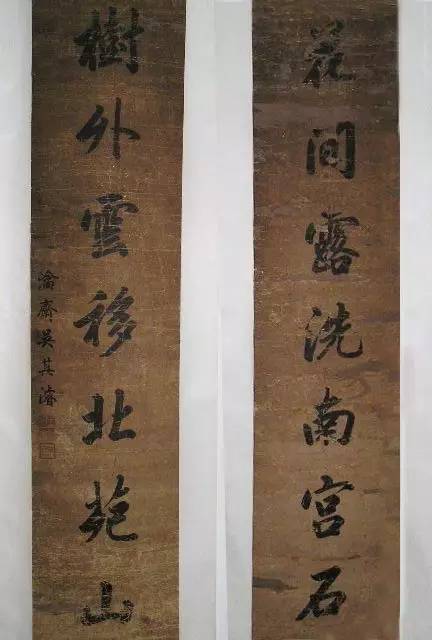 花間露洗南宮石
樹外雲移北苑山
瀹齋吳其濬